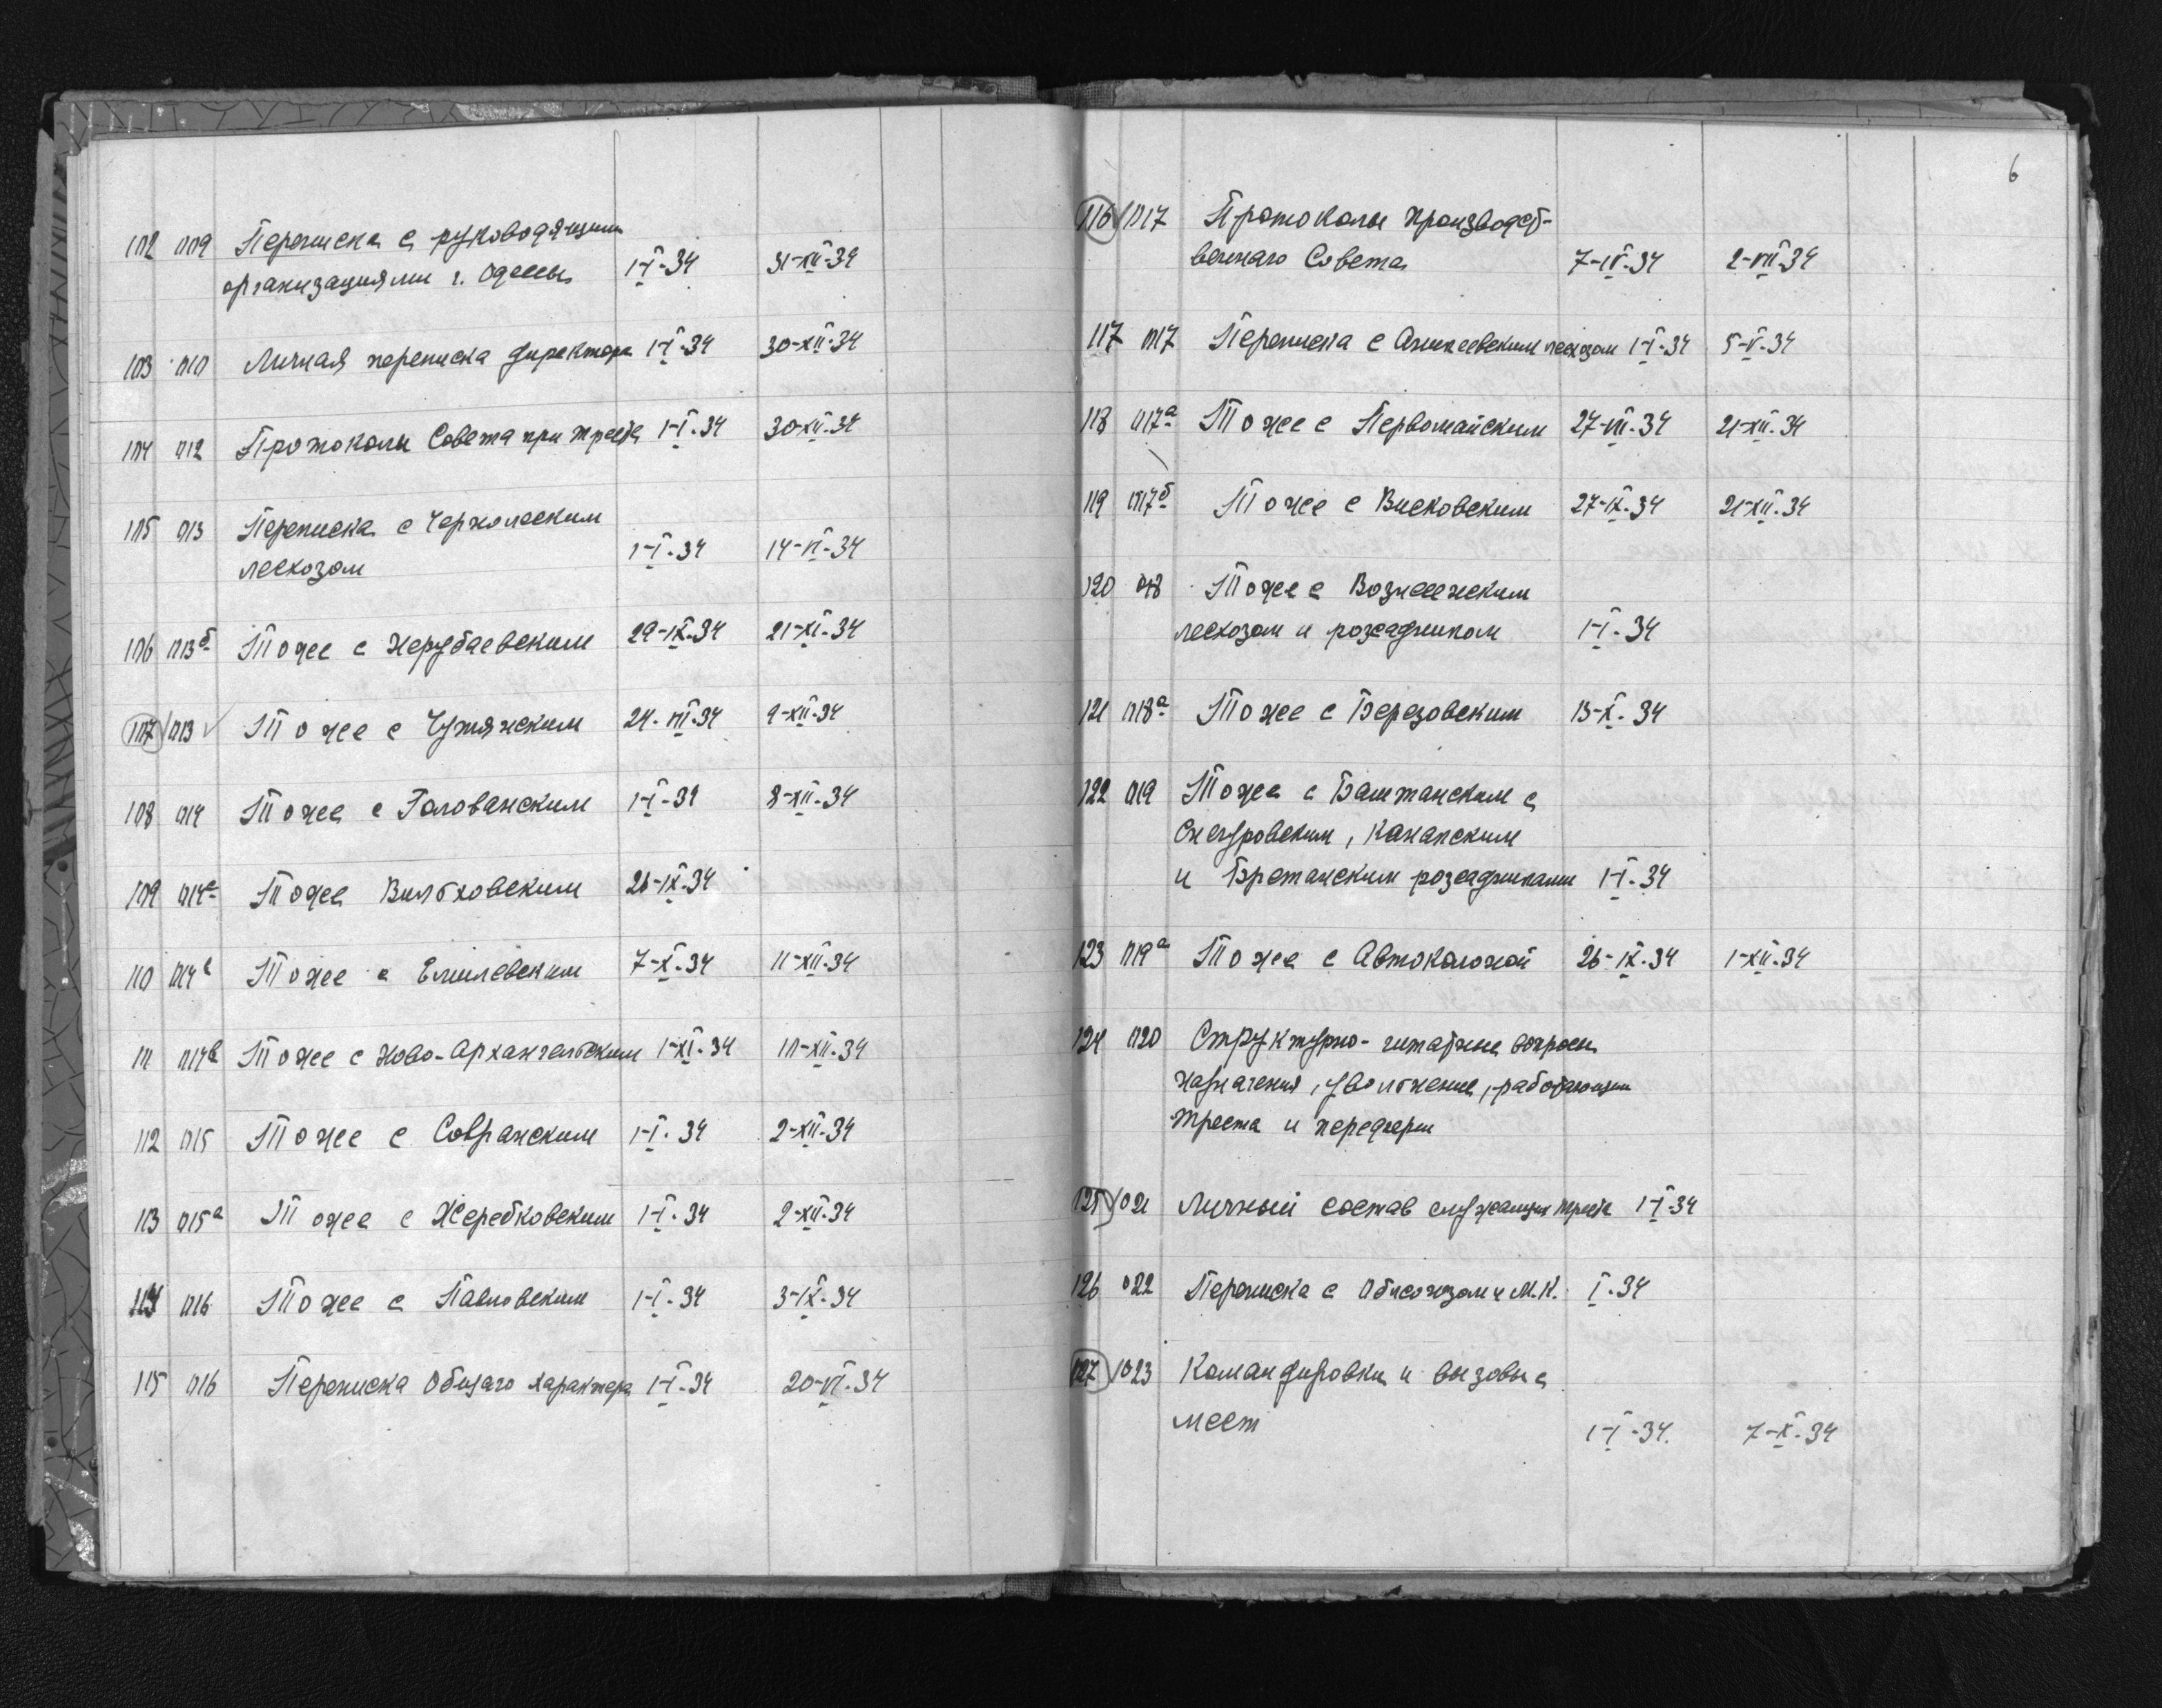 102 019 Переписка с руководящими
организациями г. Одессы 1-I-34 31-XII-34
103 010 Личная переписка директора 1-I-34 30-XII-34
104 012 Протоколы Совета при тресте 1-I-34 30-XII-34
105 013 Переписка с Чернолеским
лесхозом 1-I-34 14-VI-34
106 013б Тоже с Нерубаевским 29-IX-34 21-XI-34
107 013 Тоже с Чутянским 24-VII-34 9-XII-34
108 014 Тоже с Голованским 1-I-34 8-XII-34
109 014а Тоже Вильховским 26-IX-34
110 014 Тоже с Емилевским 7-X-34 11-XII-34
111 014в Тоже с Ново-Архангельским 1-XI-34 10-XII-34
112 015 Тоже с Савранским 1-I-34 2-XII-34
113 015а Тоже с Жеребковским 1-I-34 2-XII-34
114 016 Тоже с Павловским 1-I-34 3-IX-34
115 016 Переписка Общаго характера 1-I-34 20-VI-34
6
116 017 Протоколы производст-
веннаго Совета 7-IV-34 2-VII-34
117 017 Переписка с Ананьевским лесхозом 1-I-34 5-V-34
118 017а Тоже с Первомайским 27-VII-34 21-XII-34
119 017б Тоже с Висковским 27-IX-34 21-XII-34
120 018 Тоже с Вознесенским
лесхозом и розсадником 1-I-34
121 018а Тоже с Березовским 13-X-34
122 019 Тоже с Баштанским с
Снегуровским, Канапским
и розсадниками 1-I-34
123 019а Тоже с Автоколоной 26-IX-34 1-XII-34
124 020 Структурно-штатные вопросы
назначения, увольнение, работающих
треста и передерии
125 021 Личный состав служащих треста 1-I-34
126 022 Переписка с Обкомом и М.К. I-34
127 023 Командировки и вызовы с
мест 1-I-34. 7-X-34